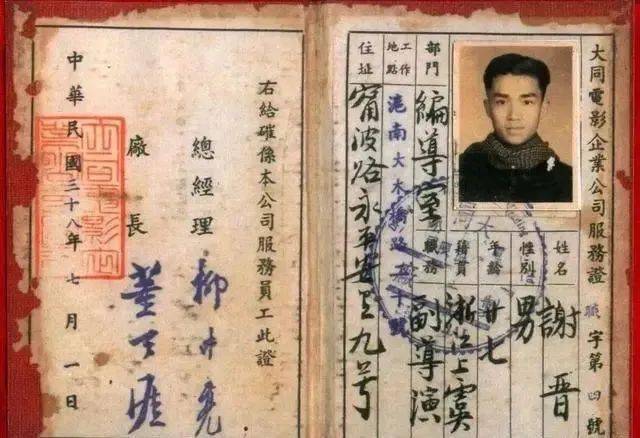 大同電影企業公司服務證
職字第四號
姓名 謝晉
性別 男
年齡 廿七
籍貫 浙江上虞
職務 副導演
部門 編導室
工作地點 滬南大木橋路 十號
住址 甯波路永平安里九号
右給確係本公司服務員工此證
總經理 柳中亮
廠長 董天涯
中華民國三十八年七月一日